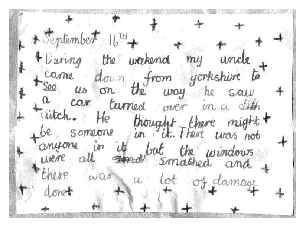 September 16th
During the weekend my uncle
came down from yorkshire to
see us on the way he saw
a car turned over in a dith
ditch. He thought there might
be someone in it. There was not
anyone in it but the windows
were all smashed and
there was a lot of damage
done